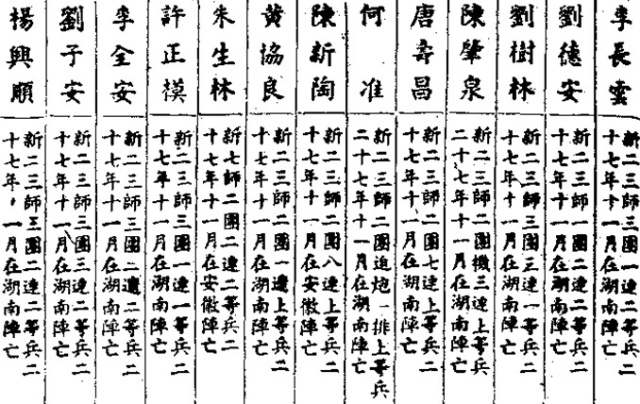 李長雲
新二三師三團一連二等兵二
十七年十一月在湖南陣亡
劉德安
新二三師二團一連二等兵二
十七年十一月在湖南陣亡
劉樹林
新二三師三團三連一等兵二
十七年十一月在湖南陣亡
陳肇泉
新二三師二團機三連上等兵
二十七年十一月在湖南陣亡
唐壽昌
新二三師二團七連上等兵二
十七年十一月在湖南陣亡
何准
新二三師二團迫炮一排上等兵
二十七年十一月在湖南陣亡
陳新陶
新二三師二團八連上等兵二
十七年十一月在安徽陣亡
黃協良
新二三師二團一連上等兵二
十七年十一月在湖南陣亡
朱生林
新七師二團二連二等兵二
十七年十一月在安徽陣亡
許正模
新二三師三團一連一等兵二
十七年十一月在湖南陣亡
李全安
新二三師三團二連二等兵二
十七年十一月在湖南陣亡
劉子安
新二三師三團三連二等兵二
十七年十一月在湖南陣亡
楊興順
新二三師三團二連二等兵二
十七年十一月在湖南陣亡